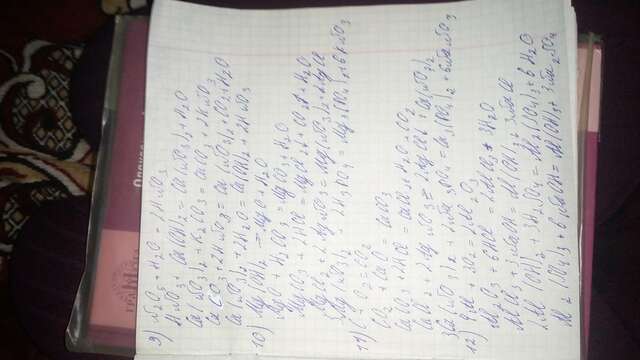 9) N2O5 + H2O = 2HNO3
HNO3 + Ca(OH)2 = Ca(NO3)2 + H2O
Ca(NO3)2 + K2CO3 = CaCO3 + 2KNO3
CaCO3 + 2HNO3 = Ca(NO3)2 + CO2 + H2O
Ca(NO3)2 + 2H2O = Ca(OH)2 + 2HNO3
10) Mg(OH)2 = MgO + H2O
MgO + H2CO3 = MgCO3 + H2O
MgCO3 + 2HCl = MgCl2 + CO2 + H2O
MgCl2 + 2AgNO3 = Mg(NO3)2 + 2AgCl
3Mg(NO3)2 + 2K3PO4 = Mg3(PO4)2 + 6KNO3
11) C + O2 = CO2
CO2 + CaO = CaCO3
CaCO3 + 2HCl = CaCl2 + H2O + CO2
CaCl2 + 2AgNO3 = 2AgCl + Ca(NO3)2
3Ca(NO3)2 + 2Na3PO4 = Ca3(PO4)2 + 6NaNO3
12) 4Al + 3O2 = 2Al2O3
Al2O3 + 6HCl = 2AlCl3 + 3H2O
AlCl3 + 3NaOH = Al(OH)3 + 3NaCl
2Al(OH)3 + 3H2SO4 = Al2(SO4)3 + 6H2O
Al2(SO4)3 + 6NaOH = Al(OH)3 + 3Na2SO4